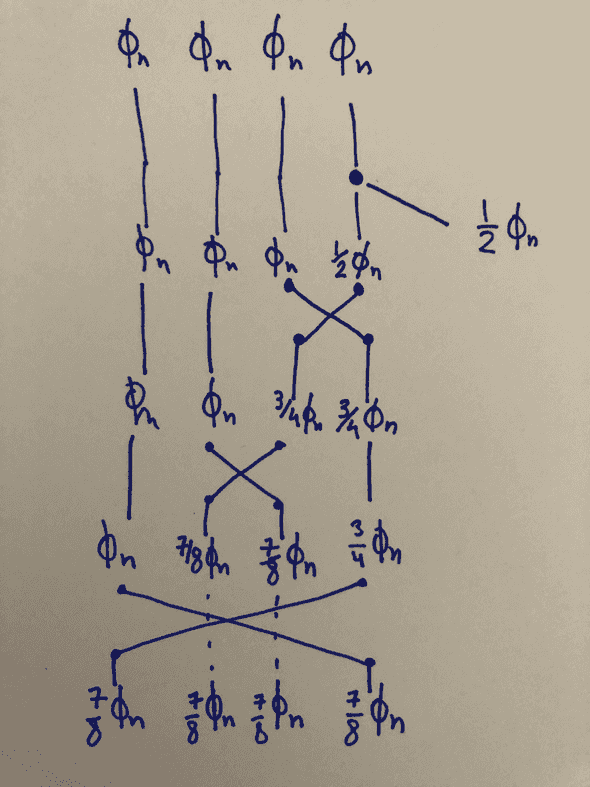 ϕₙ ϕₙ ϕₙ ϕₙ
½ ϕₙ
ϕₙ ϕₙ ϕₙ ½ϕₙ
ϕₙ ϕₙ 3/4ϕₙ 3/4ϕₙ
ϕₙ 7/8ϕₙ 7/8ϕₙ 3/4ϕₙ
7/8ϕₙ 7/8ϕₙ 7/8ϕₙ 7/8ϕₙ